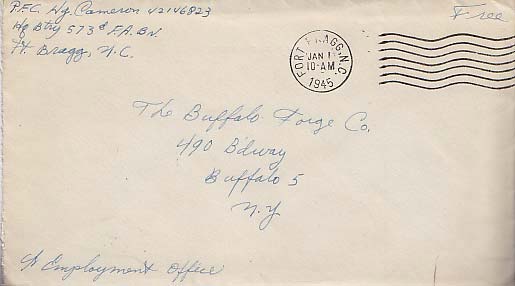 PFC Wg. Cameron 42146823
Hq Btry 573d F.A. Bn.
Ft. Bragg, N.C.
Free
FORT BRAGG, N.C.
JAN 1
10-AM
1945
The Buffalo Forge Co.
490 B'dway
Buffalo 5
N.Y
c/o Employment Office